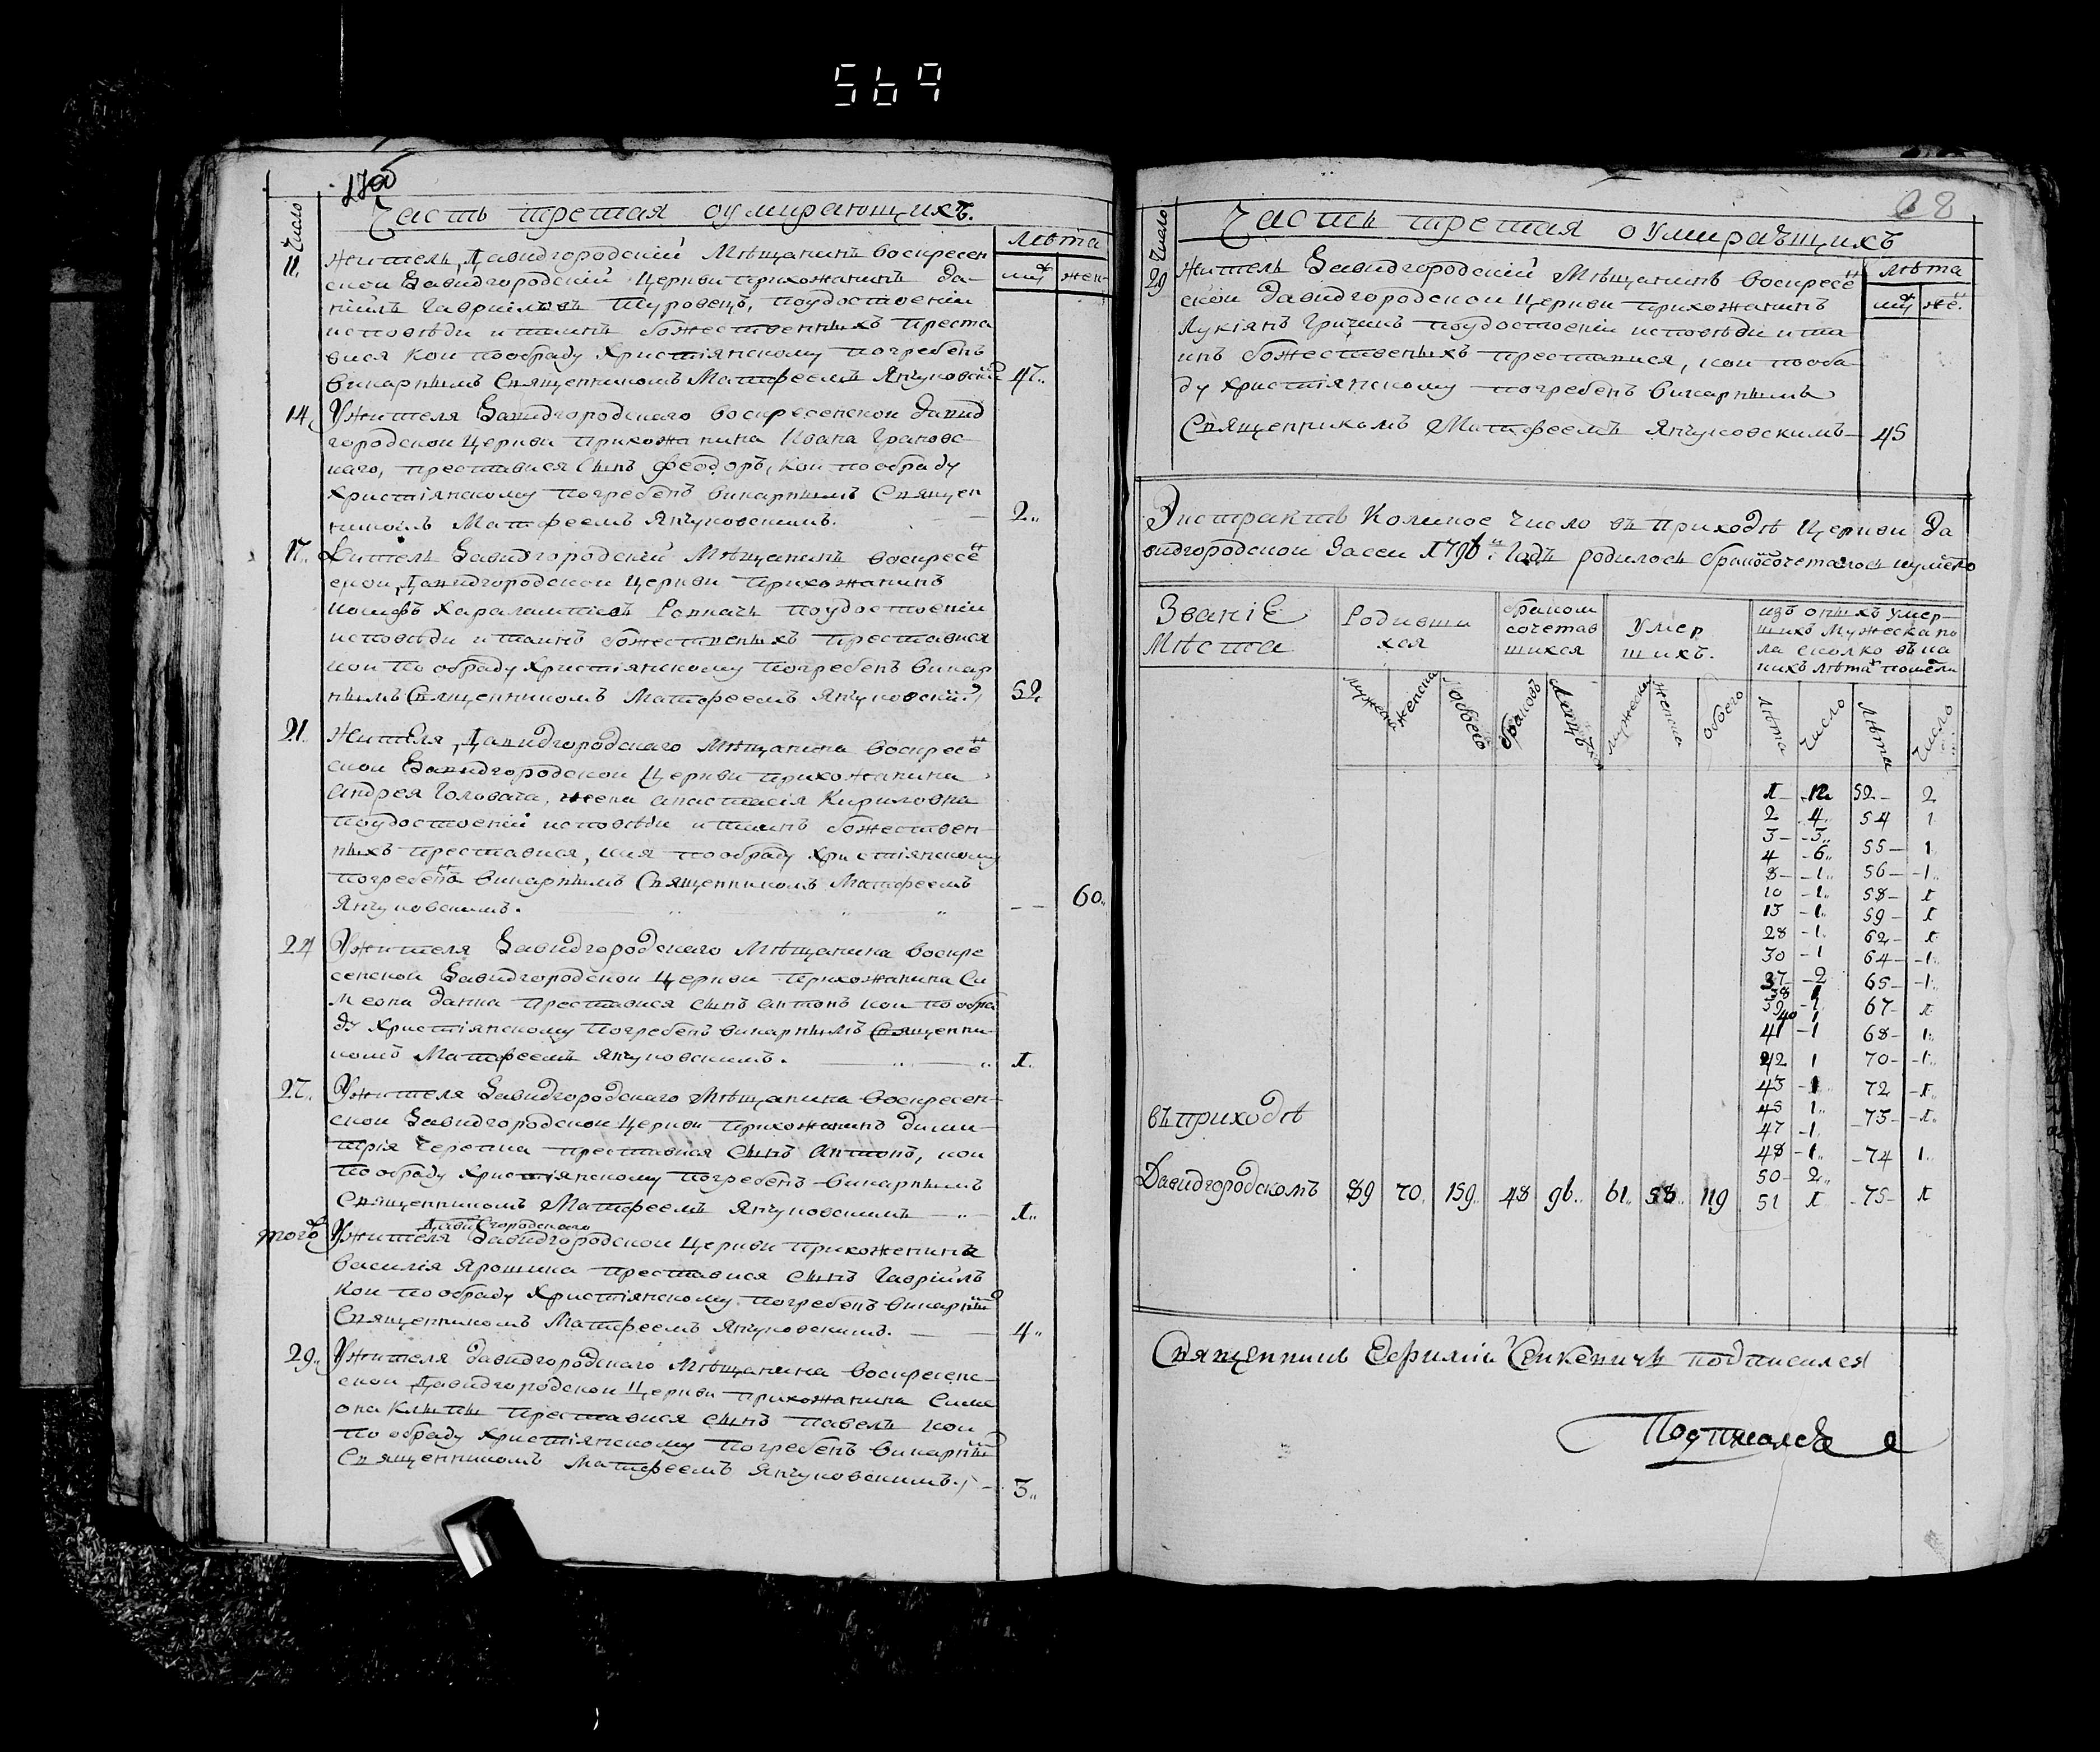 569
Часть третая оумирающихъ.
Число
лѣта
муж
жен
11.
Житель Давидгородскій Мѣщанинъ воскресен
ской Давидгородскій Церкви прихожанинъ Да-
ніилъ Гавриловъ Туровецъ, поудостоеніи
исповѣди и таинъ божественныхъ преста
вися кои пообраду христіянскому погребенъ
викарнымъ Священникомъ Матфеемъ Янчуковски
47..
14.
Ужителя Давидгородскаго воскресенскои давид
городскои Церкви прихожанина Ивана Грановс-
каго, преставися сынъ Феодоръ, кои пообраду
христіянскому погребенъ викарнымъ Священ
никомъ Матфеемъ Янчуковскимъ.
2..
17..
Житель Давидгородскій Мѣщанинъ воскресе
скои Давидгородскои Церкви прихожанинъ
Иосифъ Харалампіевъ поудостоеніи
исповѣди и таинъ божественыхъ преставися
кои по обраду христіянскому погребенъ викар
нымъ Священникомъ Матфеемъ Янчуковски
52
21.
Жителя Давидгородскаго Мѣщанина воскресе
скои Давидгородскои Церкви прихожанина
андрея Головача, жена анастасія Кириловна
поудостоеніи исповѣди и таинъ божествен-
ныхъ преставися, кия пообраду христіянскому
погребена викарнымъ Священникомъ Матфеемъ
Янчуковскимъ.
60..
24
Ужителя Давидгородскаго Мѣщанина воскре
сенскои Давидгородскои Церкви прихожанина Си
меона преставися сынъ антонъ кои пообра
ду христіянскому погребенъ викарнымъ Священни-
комъ Матфеемъ Янчуковскимъ.
1.
27..
Ужителя Давидгородскаго Мѣщанина воскресен-
скои Давидгородскои Церкви прихожанинъ дими-
трія Черепка преставися сынъ Антонъ, кои
пообраду христіянскому погребенъ викарнымъ
Священникомъ Матфеемъ Янчуковскимъ
1..
того
Давидгородскаго
Ужителя Давидгородскои Церкви прихоженина
василія Ярошика преставися сынъ Гавріилъ
кои пообраду христіянскому погребенъ викарны
Священникомъ Матфеемъ Янчуковскимъ.
4..
29..
Ужителя Давидгородскаго Мѣщанина воскресенс-
скои Давидгородскои Церкви прихожанина Симе
она преставися сынъ павелъ кои
по обраду христіянскому погребенъ викарны
Священникомъ Матфеемъ Янчуковскимъ.
3..
8
Часть третая оумираъщихъ
Число
лѣта
муж
же.
29
Житель Давидгородскій Мѣщанинъ воскресе
скои Давидгородскои Церкви прихожанинъ
Лукіянъ Гричикъ поудостоеніи исповѣди и та-
инъ божественыхъ преставися, кои пообра-
ду христіянскому погребенъ викарнымъ
Священникомъ Матфеемъ Янчуковскимъ
45
Экстрактъ Коликое число въ приходѣ Церкви Да
видгородскои 1796: Годъ родилось бракосочеталось иумерло
Званіе
Мѣста
Родивши
хся
браком
сочетав
шихся
Умер
шихъ.
изъ оныхъ умер-
шихъ Мужеска по
ла сколко въ ка
кихъ лѣта помѣли
мужеска
женска
обоего
браковъ
мужеска
женска
обоего
лѣта
число
лѣта
число
1 12 52 2
2 4 54 1
3 3 55 1
4 6 56 1
8 1 58 1
10 1 59 1
13 1 62 1
28 1 64 1
30 1 65 1
37 2 67 1
38 1
39 1 68 1
40 1
41 1 70 1
42 1 72 1
43 1 73 1
45 1 74 1
47 1 75 1
48 1
50 2
51 1
въприходѣ
Давидгородскомъ 89 70. 159. 48 96.. 61.. 58.. 119
Священникъ Ефимій подписался